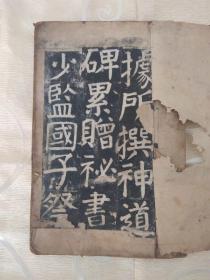 據所撰神道
碑累贈祕書
少監國子祭